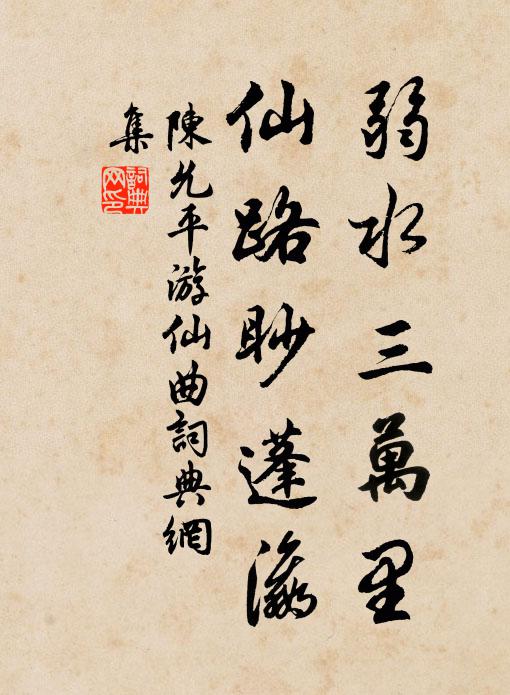 弱水三萬里
仙路眇蓬瀛
陳允平游仙曲詞典網
集
詞典網印